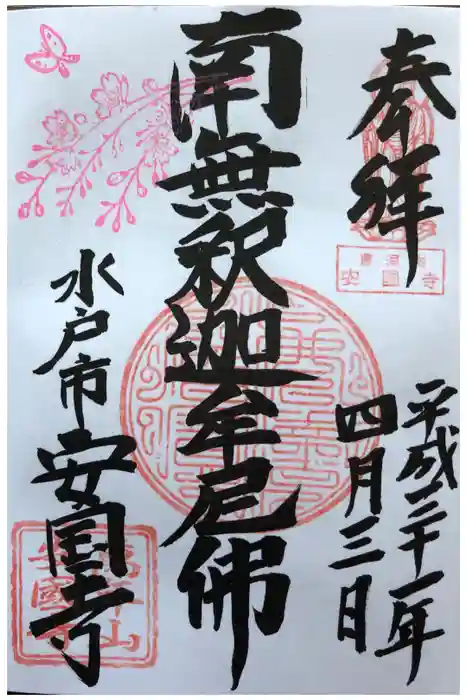 奉拝
安國寺
平成三十一年
四月三日
南無釈迦牟尼佛
水戸市
安国寺